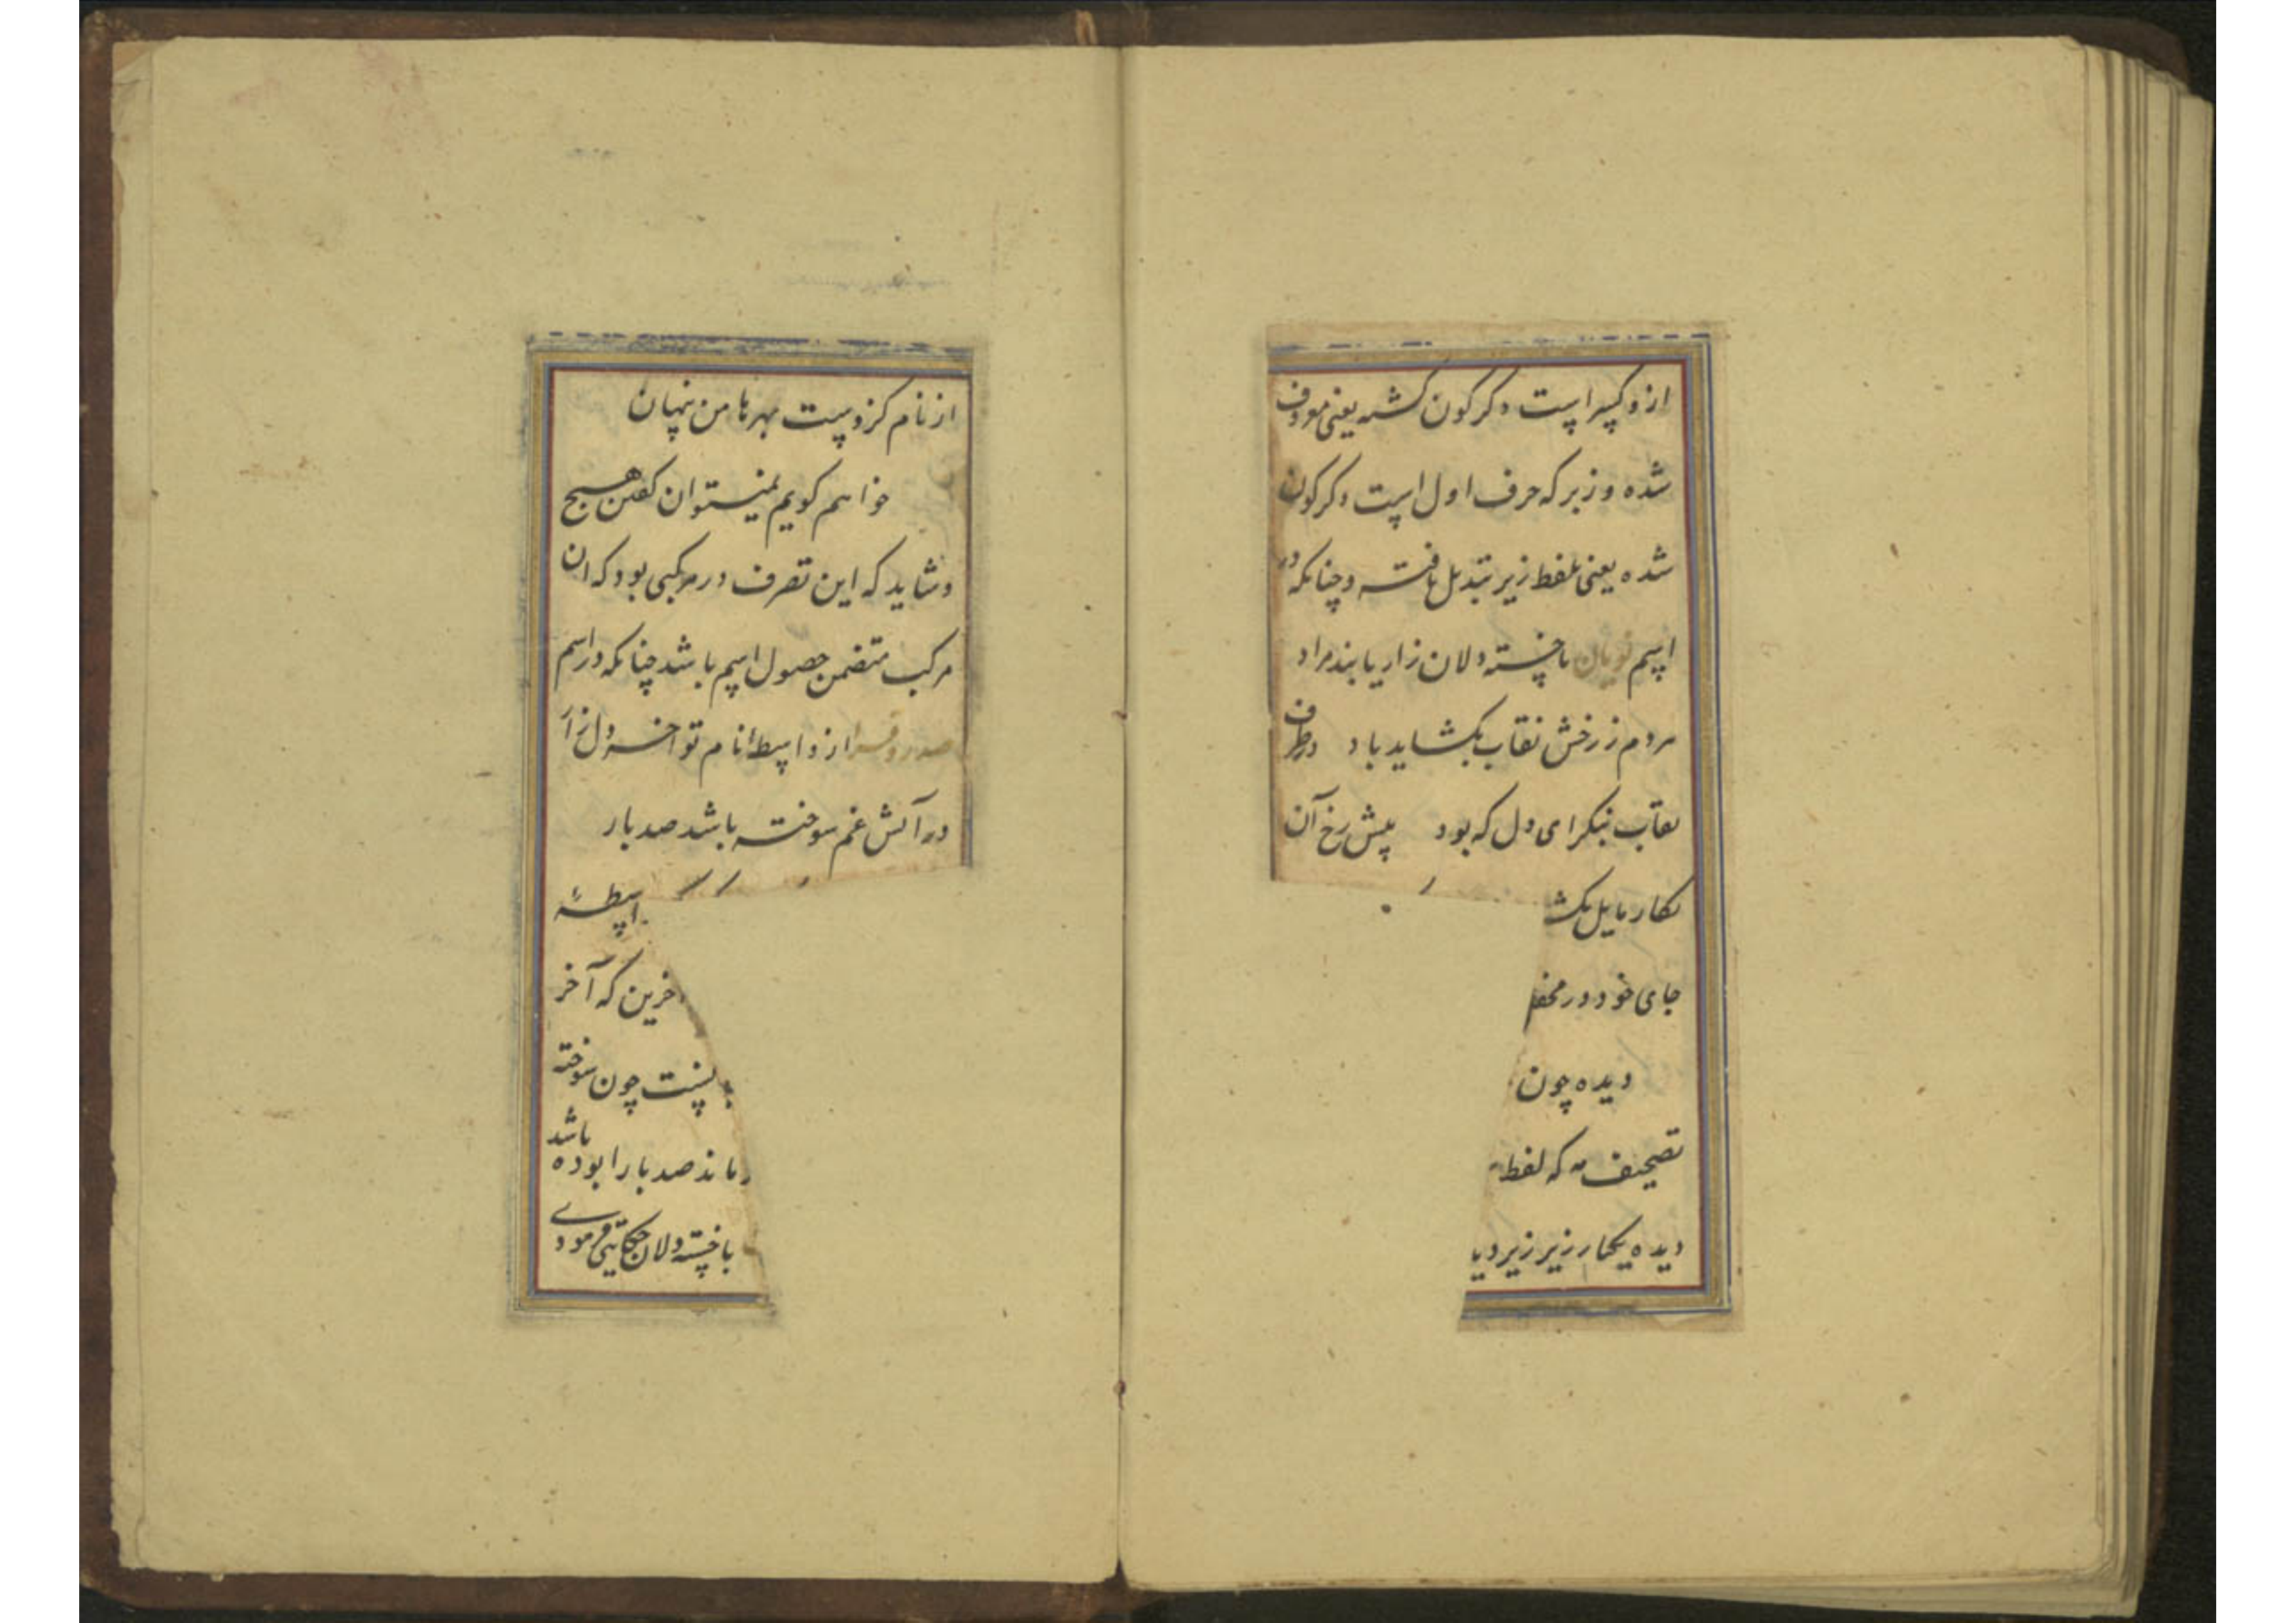 ازو کسر است دکرکون کشته یعنی معروف
شده و زبر که حرف اول است دکرکون
شده یعنی بلفظ زیر تبدیل یافته و چنانکه در
اسم نویان تا خسته دلان زار یابند مراد
مردم ز رخش نقاب بکشاید باد در طرف
نقاب بنکر ای دل که بود پیش رخ آن
نکار مایل بکشا
جای خود در محفل
دیده چون
تصحیف مه که لفظ
دیده یکبار زیر زیر دیا
از نام کزوست بهر ما من پنهان
خواهم کویم نمیتوان کفتن هیچ
و شاید که این تصرف در مرکبی بود که ان
مرکب متضمن حصول اسم باشد چنانکه در اسم
صدر از واسطه نام تو اخر دل زار
در آتش غم سوخته باشد صد بار
اسطهٔ
خرین که آخر
نیست چون سوخته
باشد
ماند صد بار ابوده
با خسته دلان حکایتی فرمودی